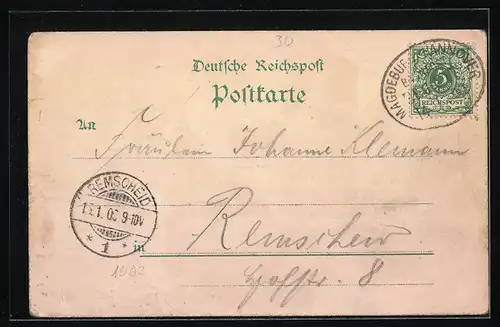 30
Deutsche Reichspost
Postkarte
MAGDEBURG HANNOVER
5
REICHSPOST
An
Fräulein Johanne Klemann
REMSCHEID
9-10V
* 1 *
in Remscheid
8
1092